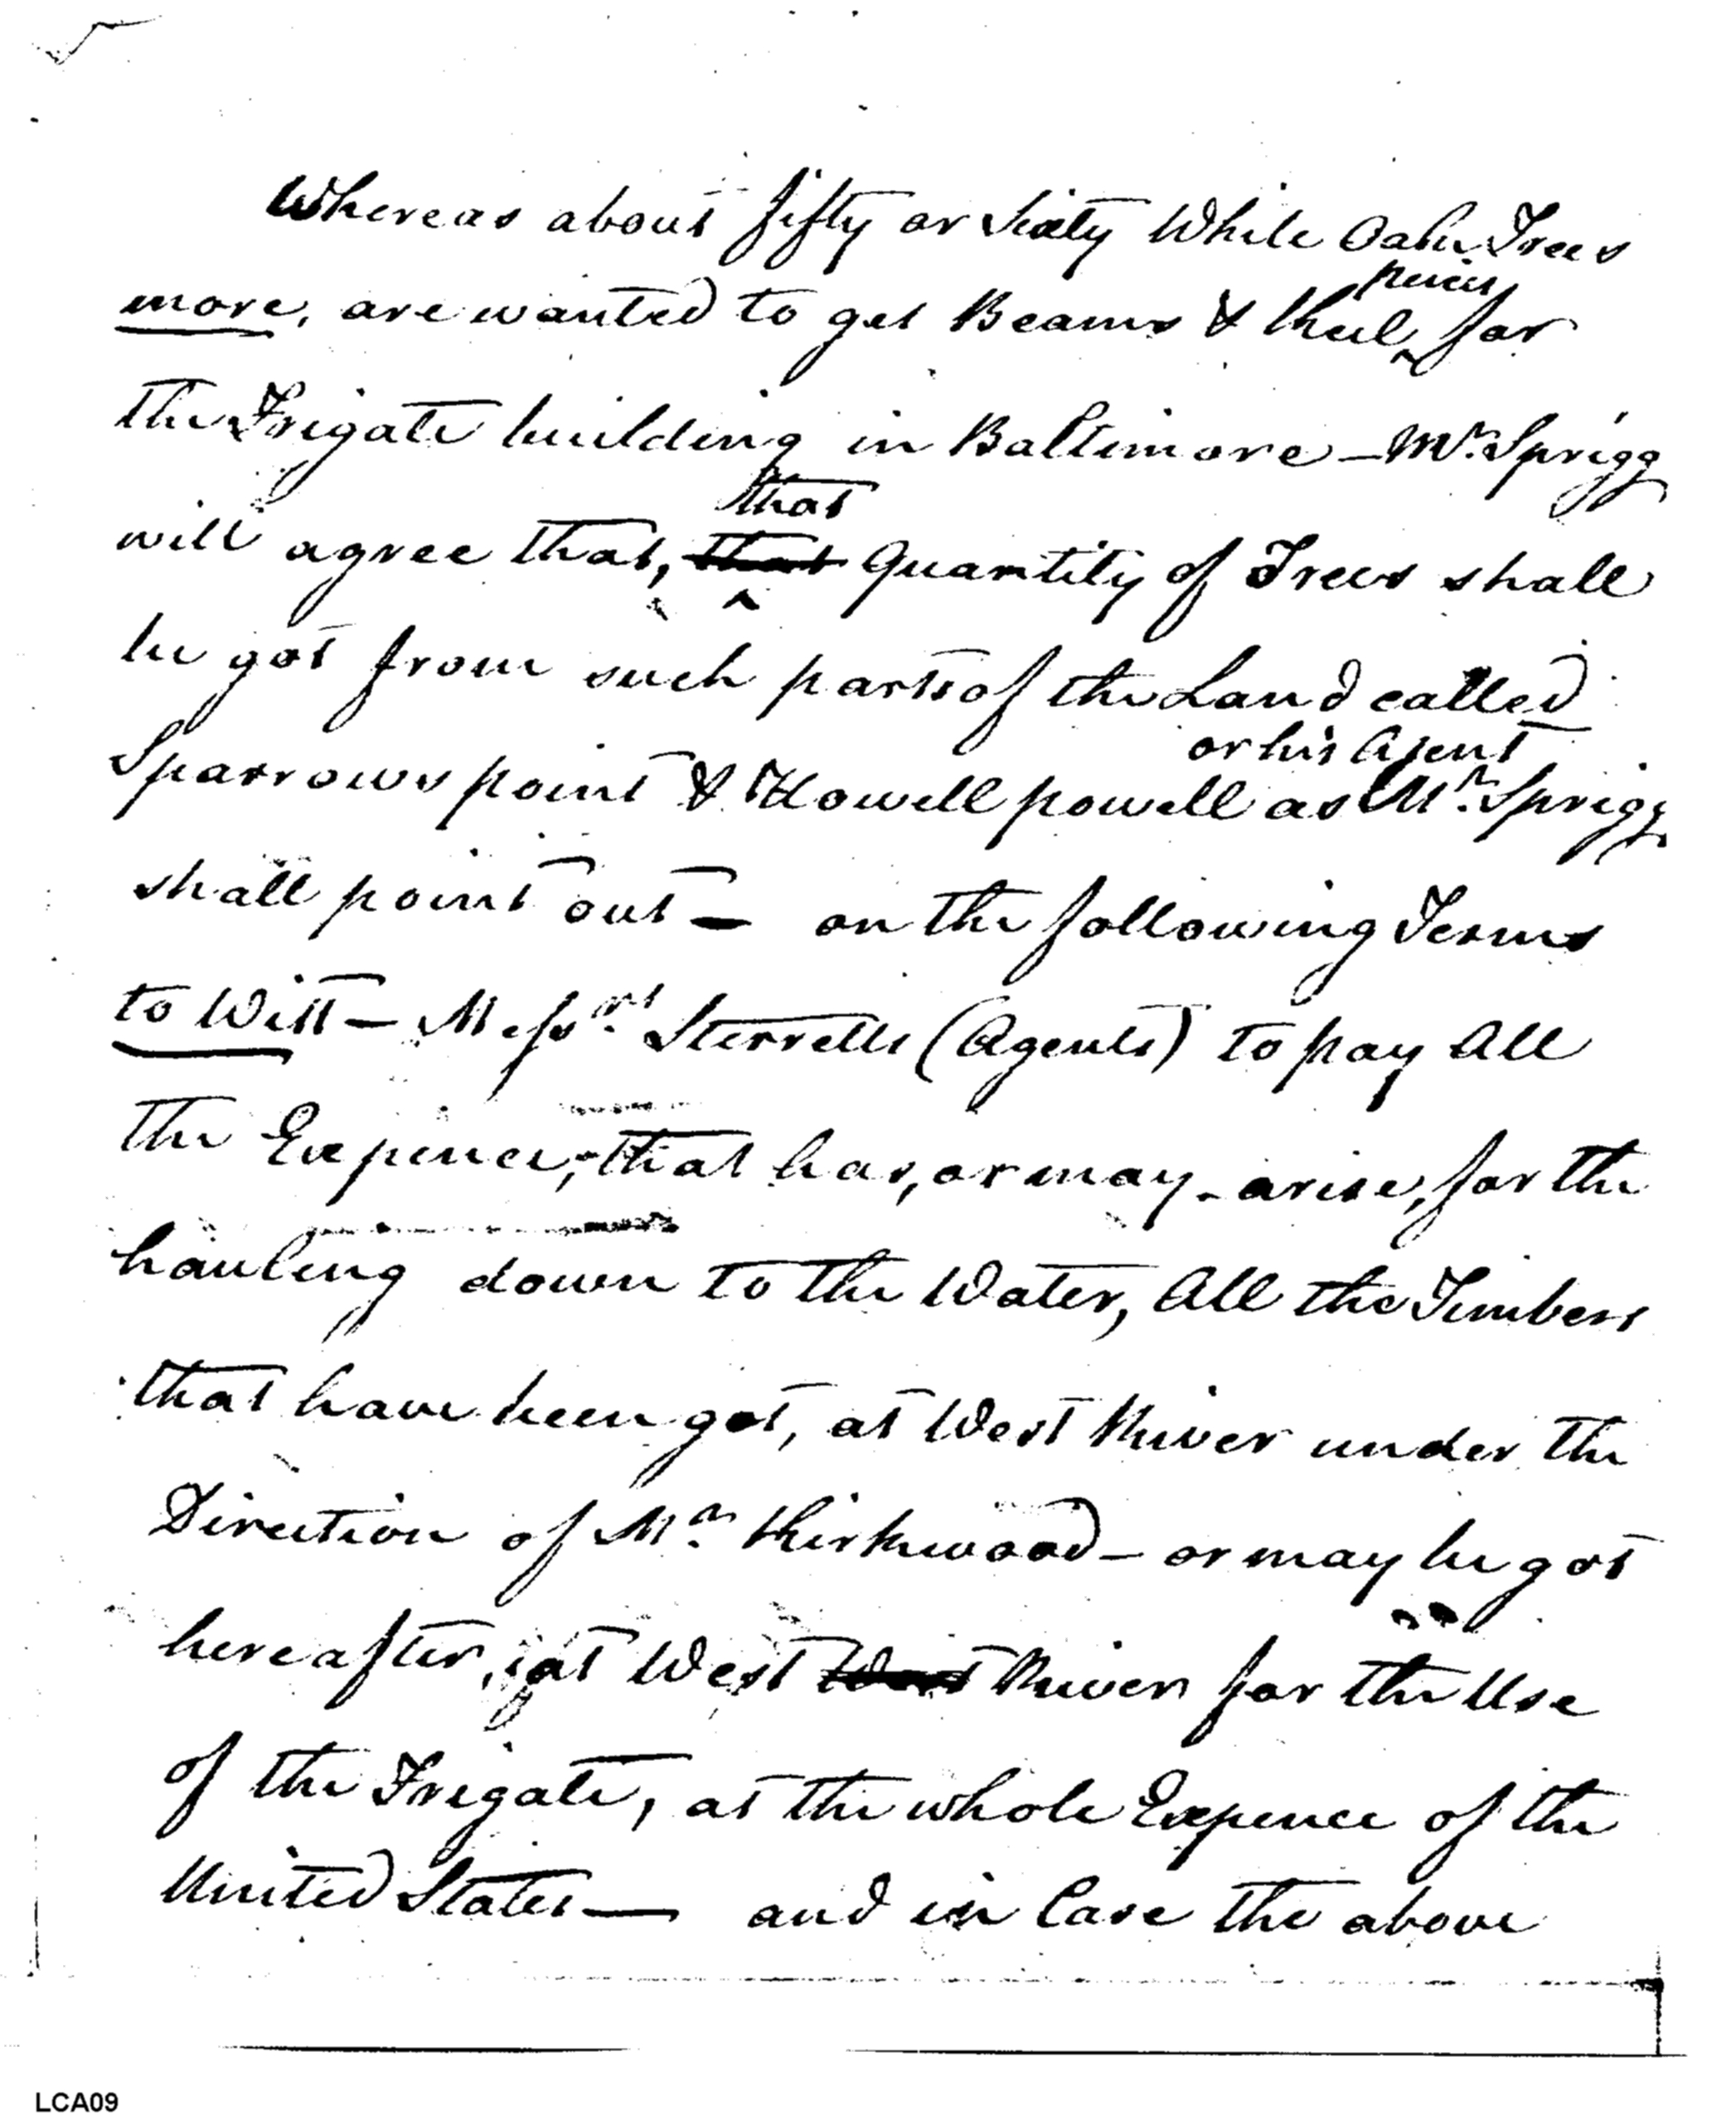 Whereas about fifty or Sixty White Oake Trees
more, are wanted to get Beams & Keel pieces for
the Frigate building in Baltimore - Mr. Sprigg
will agree that, that that Quantity of Trees shall
be got from such parts of the Land called
or his Agent
Sparrows point & Howell powell as Mr. Sprigg
shall point out - on the following Terms
to Witt - Messrs. Sterretts (Agents) to pay All
the Expence, that has, or may - arise, for the
hauling down to the Water, All the Timbers
that have been got, at West River under the
Direction of Mr. Kirkwood - or may be got
hereafter, at West West River for the Use
of the Frigate, at the whole Expence of the
United States - and in Case the above
LCA09